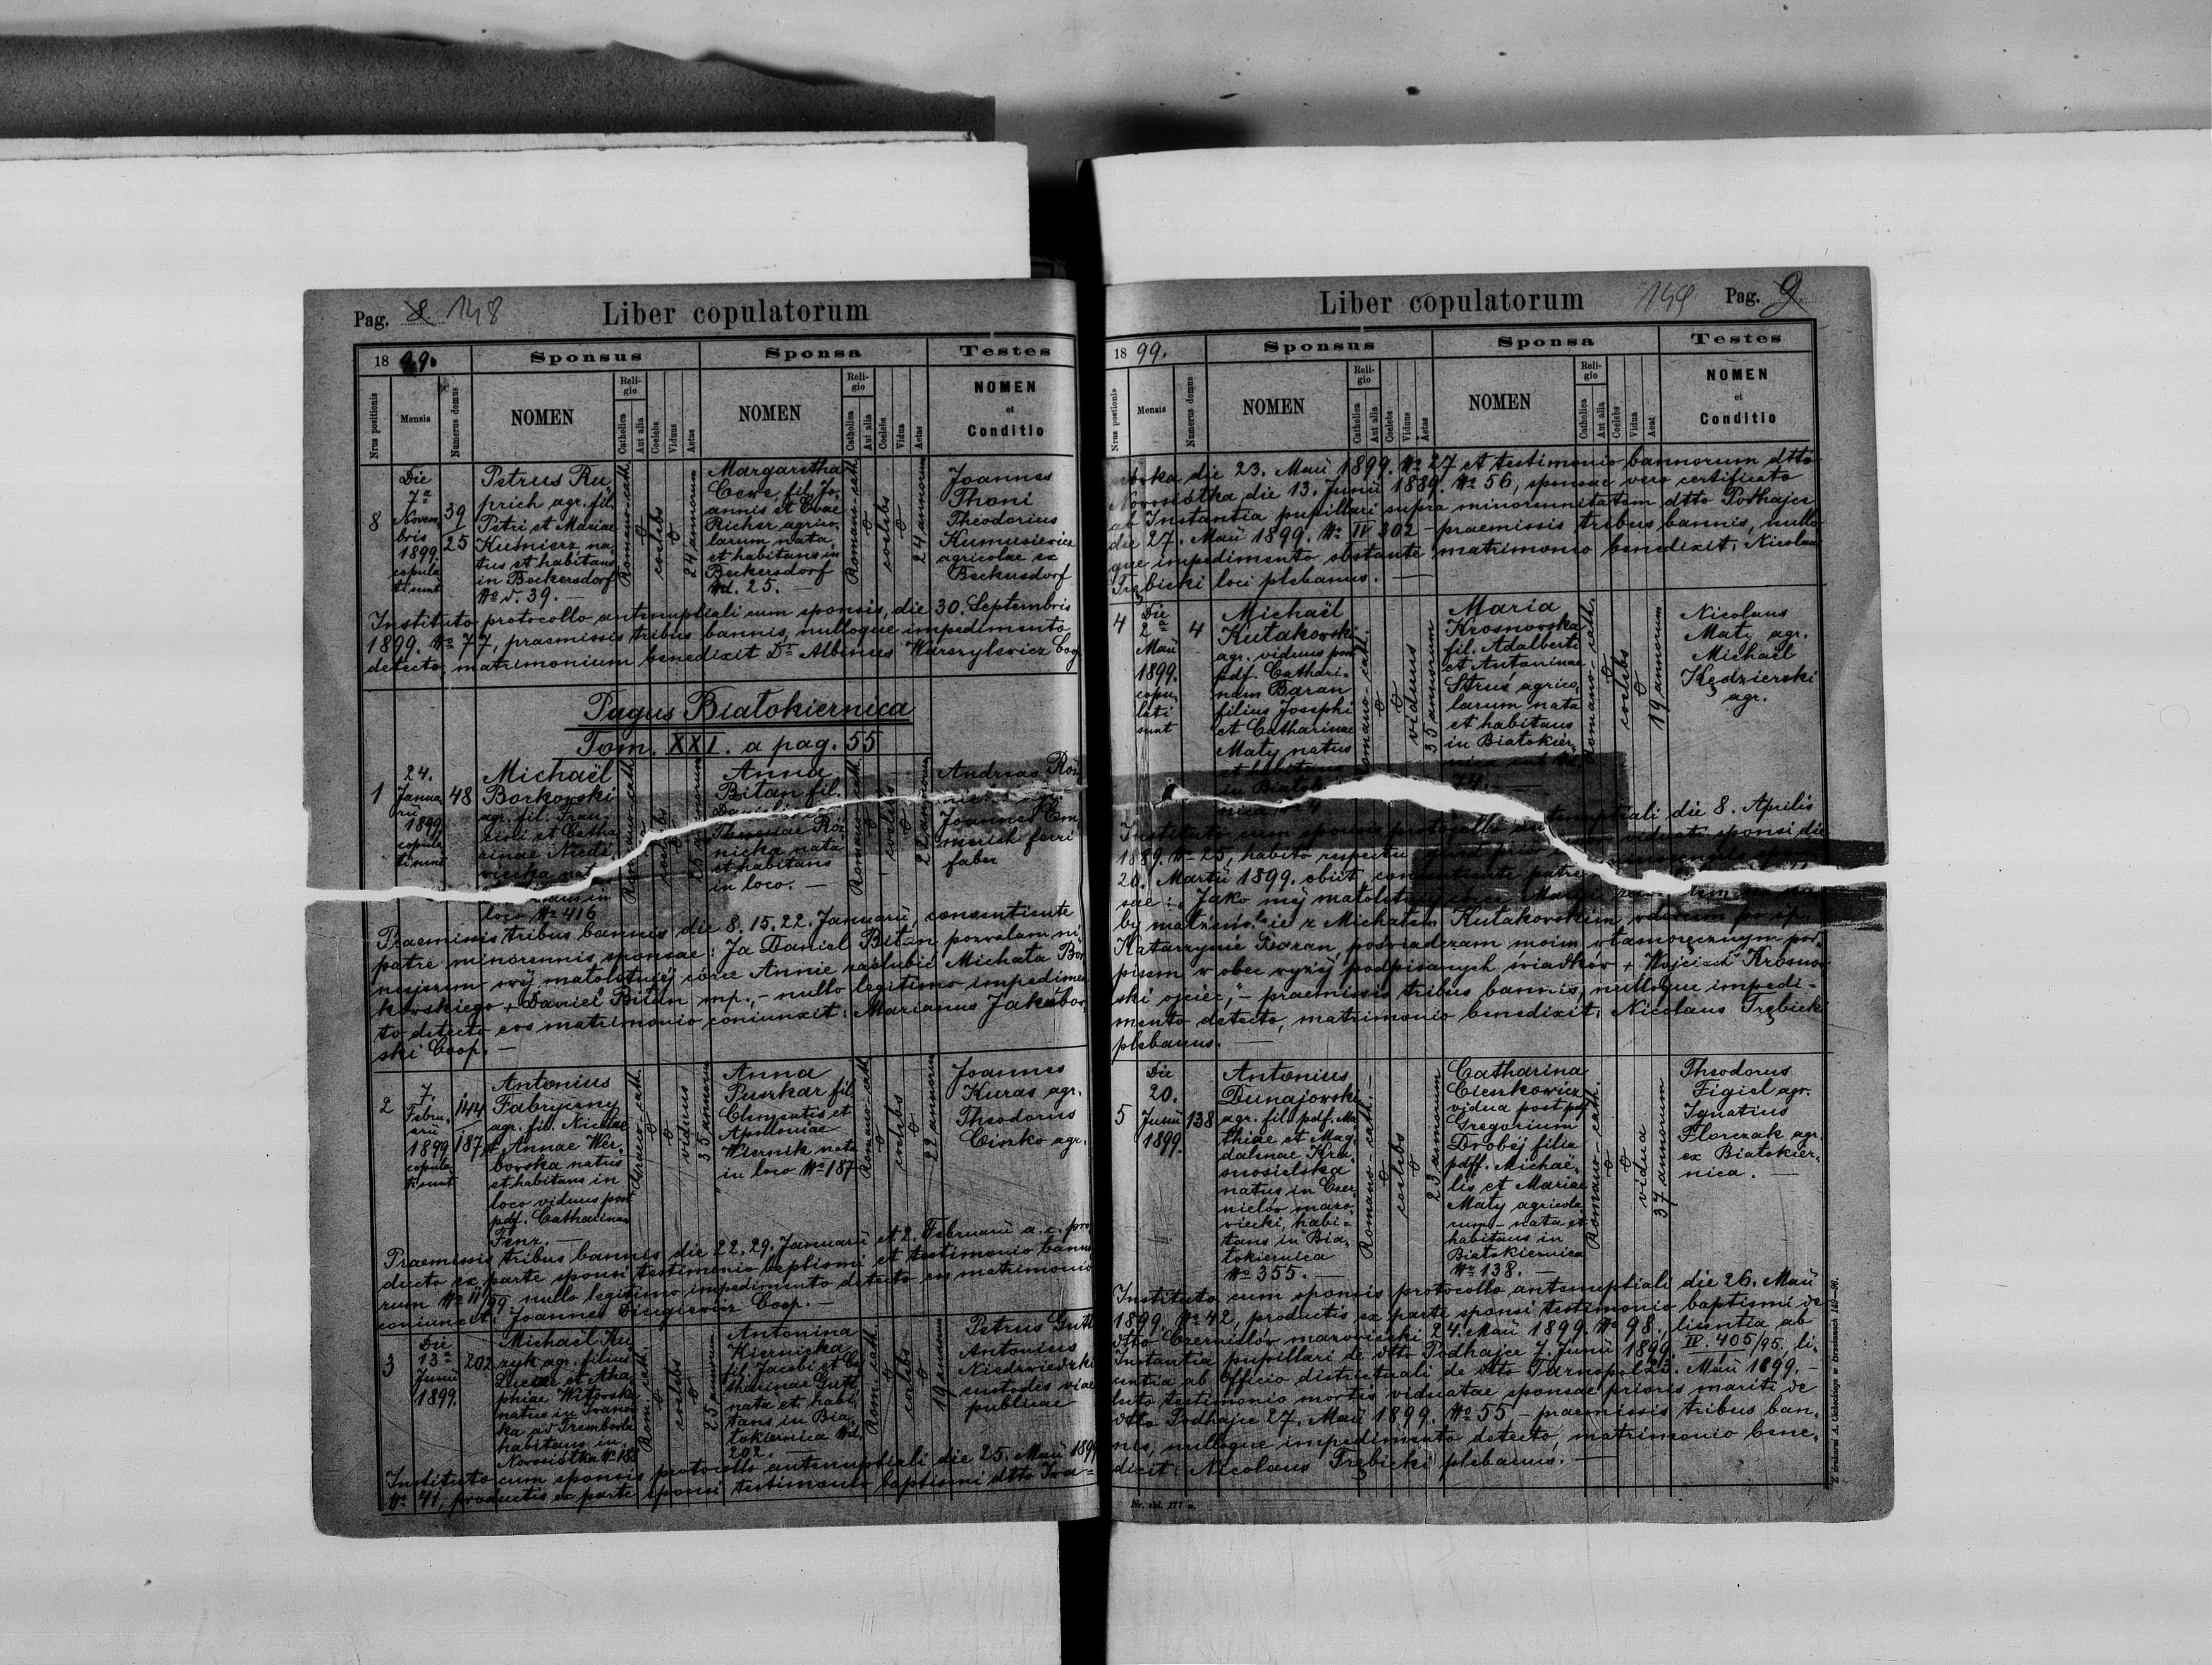 Pag. 8 148
Liber copulatorum
1899.
Sponsus
Sponsa
Testes
Nrus positionis
Mensis
Numerus domus
NOMEN
Religio
Catholica
Aut alia
Coelebs
Viduus
Aetas
NOMEN
Religio
Catholica
Aut alia
Coelebs
Vidua
Aetas
NOMEN
et
Conditio
8
Die
7a
Novem
bris
1899
copula
ti sunt
39
25
Petrus Ru„
prich agr. fil.
Petri et Mariae
Kuśnierz na„
tus et habitans
in Beckersdorf
No d. 39. —
Romano-cath.
coelebs
24 annorum
Margaretha
fil. Jo„
annis et Evae
Richer agrico„
larum nata
et habitans in
Beckersdorf
Nd. 25. —
Romano-cath.
coelebs
24 annorum
Joannes
Thoni
Theodorius
Kumusiewicz
agricolae ex
Beckersdorf
Instituto protocollo antenuptiali cum sponsis, die 30. Septembris
1899. No 77, praemissis tribus bannis, nulloque impedimento
detecto, matrimonium benedixit Dr Albinus Warszylewicz Coop
Pagus Białokiernica
Tom. XXI. a pag. 55
1
24.
Janua
rii
1899
copula
ti sunt
48
Michaël
Borkowski
agr. fil. Fran„
cisci et Catha
rinae Niedź„
wiecka nat
loco No 416
Romano-cath.
coelebs
Anna
Bitan fil.
Danielis
Theresiae Róż
nicka nata
et habitans
in loco. —
Romano-cath.
coelebs
22 annorum
Andreas Róż
Joannes Em
merich ferri
faber
Praemissis tribus bannis die 8. 15. 22. Januarii, consentiente
patre minorennis sponsae: Ja Daniel Bitan pozwalam ni„
niejszem mej małoletniej córce Annie zaślubić Michała Bor
kowskiego + Daniel Bitan mp., — nullo legitimo impedimen
to detecto eos matrimonio coniunxit: Marianus Jakubow„
ski Coop. —
2
7.
Febru„
arii
1899
copula
ti sunt
144
187
Antonius
Fabryczny
agr. fil. Nicolae
et Annae Wer„
bowska natus
et habitans in
loco viduus post
pdf. Catharinam
Fenz. —
viduus
35 annorum
Anna
Puszkar fil.
Clementis et
Apolloniae
Wiernik nata
in loco No 187
Romano-cath.
coelebs
22 annorum
Joannes
Kuras agr.
Theodorius
Ciszko agr.
Praemissis tribus bannis die 22. 29. Januarii et 2. Februarii a. c. pro
ducto ex parte sponsi testimonio baptismi et testimonio banno
rum No 11/99 nullo legitimo impedimento detecto eos matrimonio
coniunxit: Joannes Dziugiewicz Coop. —
3
Die
13a
Junii
1899.
202
Michaël Ku„
zyk agr. filius
Lucae et Aha
phiae Witowsk
natus in Iwanów
ka ad Trembowla
habitans in
Nowosiółka No 188
Rom. cath.
coelebs
25 annorum
Antonina
Kiernicka
fil. Jacobi et Ca
tharinae Gutt
nata et habi
tans in Bia„
łokiernica Nd.
202. —
Rom. cath.
coelebs
19 annorum
Petrus Gutt
Antonius
Niedźwiedzki
custodes viae
publicae
Instituto cum sponsis protocollo antenuptiali die 25. Maii 1899
No 41, productis ex parte sponsi testimonio baptismi dtto Iwa=
Liber copulatorum
149 Pag. 9
1899.
Sponsus
Sponsa
Testes
Nrus postionis
Mensis
Numerus domus
NOMEN
Religio
Catholica
Aut alia
Coelebs
Viduus
Aetas
NOMEN
Religio
Catholica
Aut alia
Coelebs
Vidua
Aetat
NOMEN
et
Conditio
nówka die 23. Maii 1899. No 27 et testimonio bannorum dtto
Nowosiółka die 13. Junii 1889. No 56, sponsae vero certificato
ab Instantia pupillari supra minorennitatem dtto Podhajce
die 27. Maii 1899. No IV 302 — praemissis tribus bannis, nullo„
que impedimento obstante matrimonio benedixit: Nicolaus
Trębicki loci plebanus. —
4
Die
2a
Maii
1899.
copu„
lati
sunt
4
Michaël
Kutakowski
agr. viduus post
pdf. Cathari=
nam Baran
filius Josephi
et Catharinae
Maty natus
et habitans
in Białokier
nica No 4
Romano-cath.
viduus
35 annorum
Maria
Krosnowska
fil. Adalberti
et Antoninae
Struś agrico„
larum nata
et habitans
in Białokier„
nica sub Nd.
74. —
Romano-cath.
coelebs
19 annorum
Nicolaus
Maty agr.
Michaël
Kędzierski
agr.
Instituto cum sponsis protocollo antenuptiali die 8. Aprilis
1889. No 25, habito respectu quod prior viduati sponsi die
20. Martii 1899. obiit consentiente patre
sae: „Jako mej małoletniej córce Maryi
by małżeńs ie z Michałem Kutakowskim wdowcem po śp.
Katarzynie Baran, poświadczam moim własnoręcznym pod„
pisem w obec wyżej podpisanych świadków + Wojciech Krosnow
ski ojciec," — praemissis tribus bannis, nulloque impedi=
mento detecto, matrimonio benedixit: Nicolaus Trębicki
plebanus. —
5
Die
20.
Junii
1899.
138
Antonius
Dunajowski
agr. fil. pdf. Ma
thiae et Mag
dalenae Kra„
snosielska
natus in Czer„
nielów mazo„
wiecki, habi=
tans in Bia„
łokiernica
No 355. —
Romano-cath.
coelebs
23 annorum
Catharina
Cieszkowicz
vidua post pdf
Gregorium
Drobéj filia
pdff. Michaë„
lis et Mariae
Maty agricola
rum — nata et
habitans in
Białokiernica
No 138. —
Romano-cath.
vidua
37 annorum
Theodorus
Figiel agr.
Ignatius
Florczak agr.
ex Białokier„
nica. —
Instituto cum sponsis protocollo antenuptiali die 26. Maii
1899. No 42, productis ex parte sponsi testimonio baptismi de
dtto Czernillów mazowiecki 24. Maii 1899. No 98, licentia ab
Instantia pupillari de dtto Podhajce 7. Junii 1899. IV. 405/95, li„
centia ab Officio districtuali de dtto Tarnopol 23. Maii 1899. —
luto testimonio mortis viduatae sponsae prioris mariti de
dtto Podhajce 27. Maii 1899. No 55 — praemissis tribus ban„
nis, nulloque impedimento detecto, matrimonio bene„
dixit: Nicolaus Trębicki plebanus. —